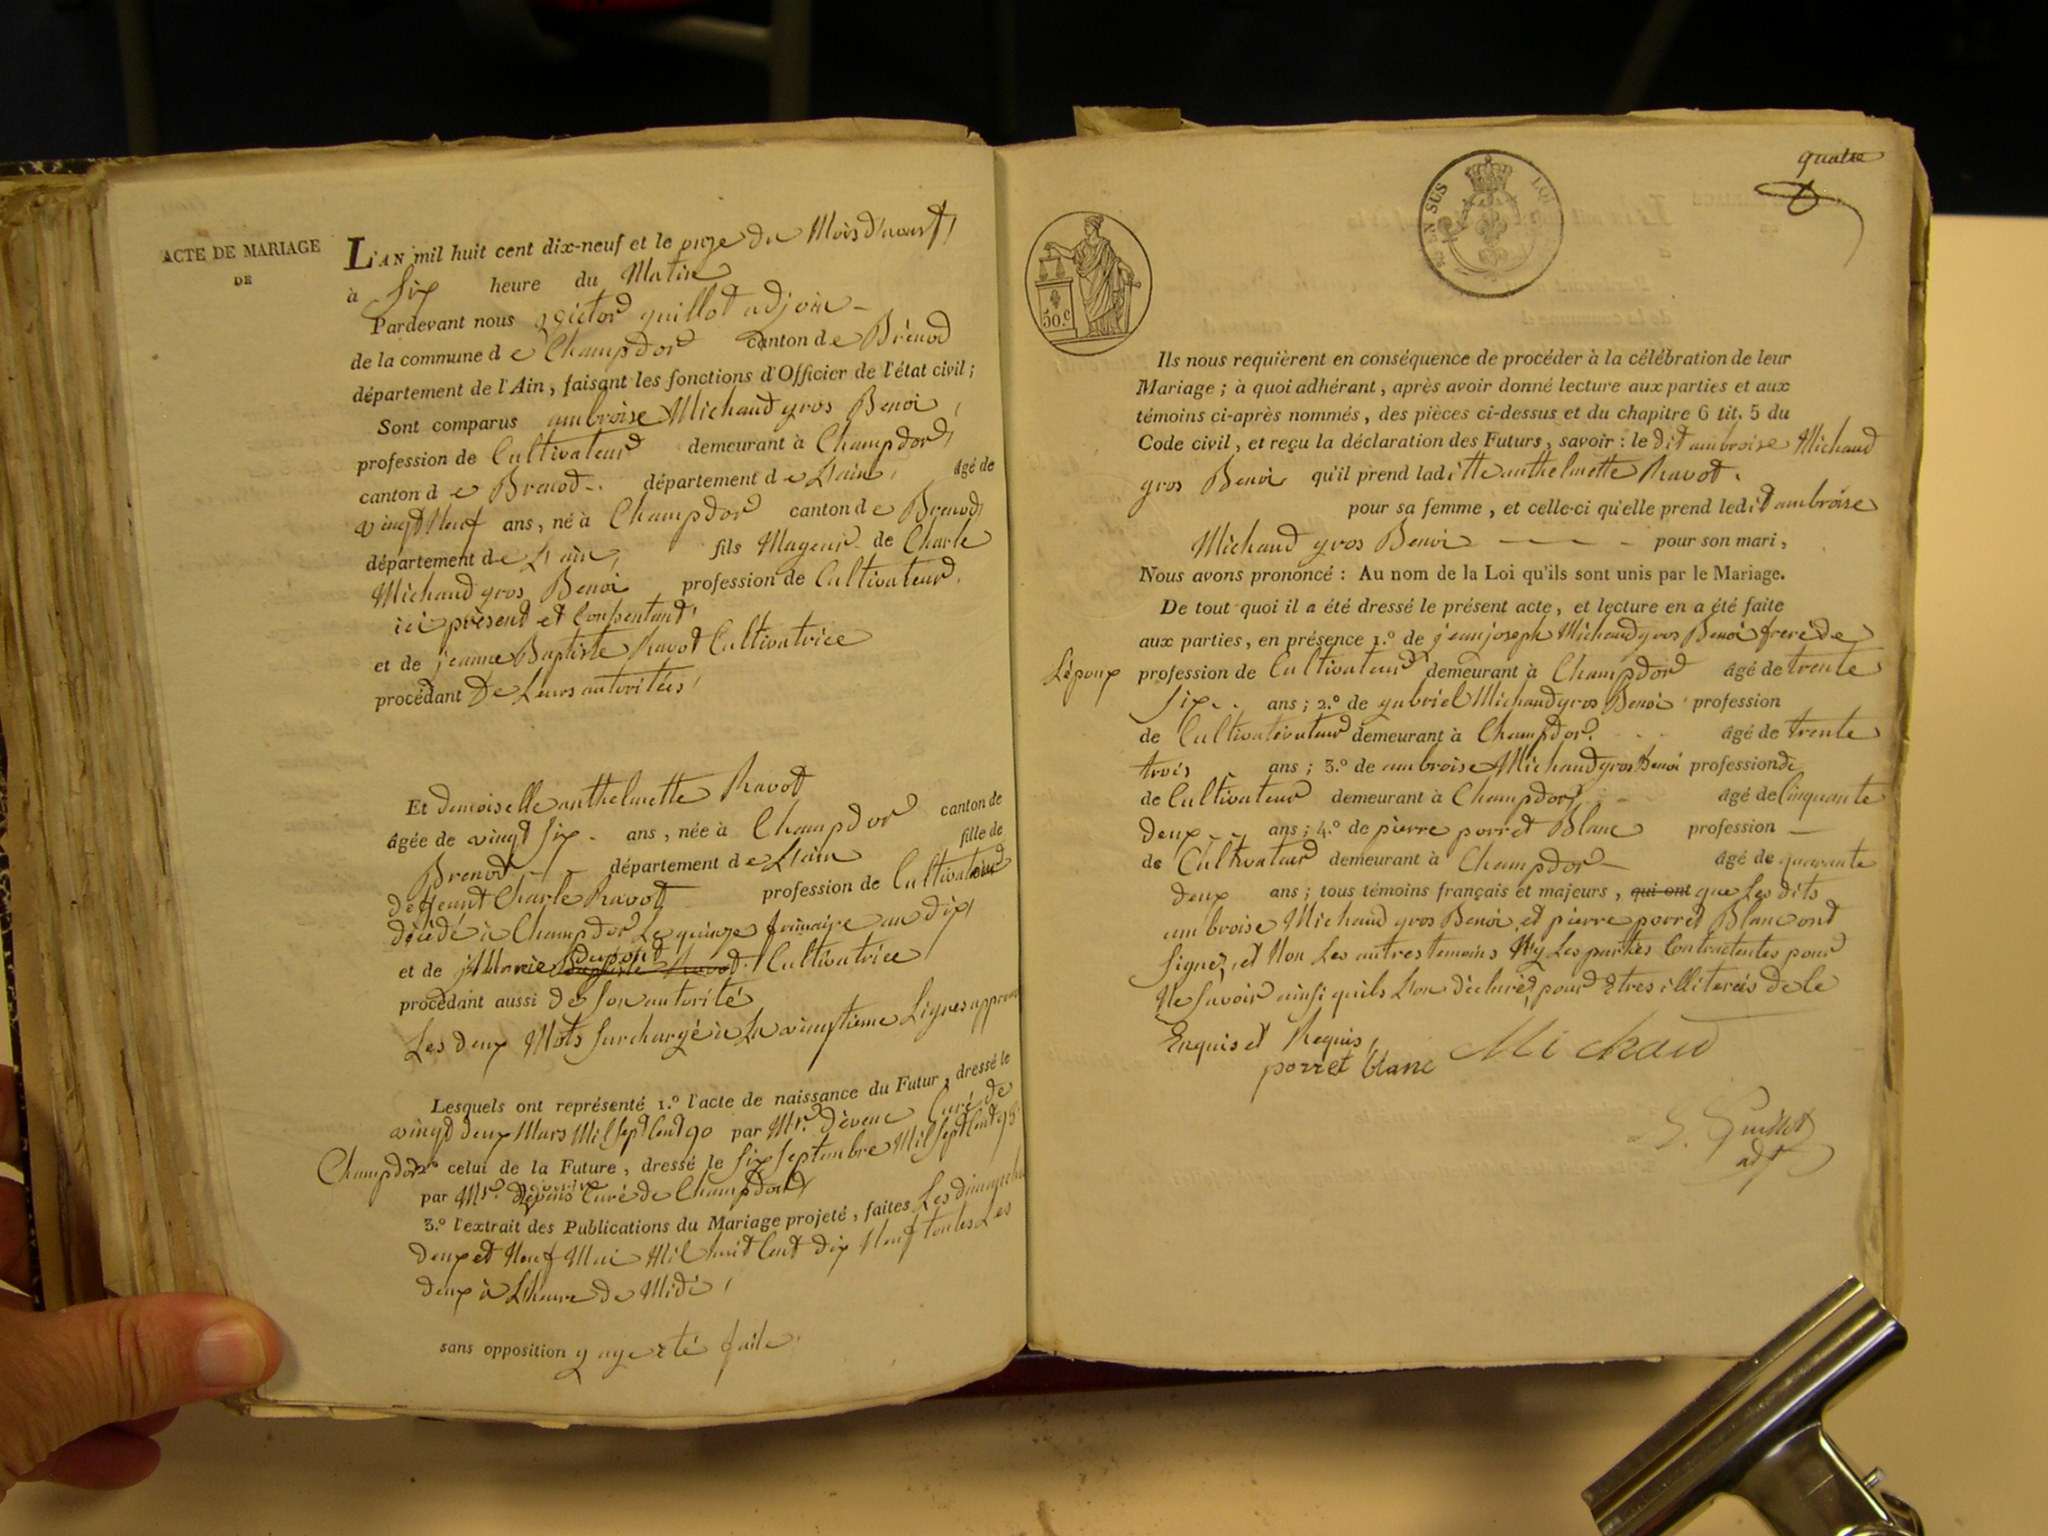 ACTE DE MARIAGE
DE
L'AN mil huit cent dix-neuf et le onze du Mois d'aoust,
à Six heure du Matin
Pardevant nous victor guillot adjoin
de la commune de Champdor canton de Brénod
département de l'Ain, faisant les fonctions d'Officier de l'état civil;
Sont comparus ambroise Michaud gros Benoi,
profession de Cultivateur demeurant à Champdor,
canton de Brenod. département de L'ain, âgé de
vingt Neuf ans, né à Champdor canton de Brenod,
département de L'ain, fils Mageur de Charle
Michaud gros Benoi profession de Cultivateur,
ici présent et Consentant,
et de jeanne Baptiste Ravot Cultivatrice
procédant De Leurs autorités,
Et demoiselle anthelmette Ravot
âgée de vingt six ans, née à Champdor canton de
Brenod département de L'ain fille de
defeunt Charle Ravot profession de Cultivateur
décédé à Champdor Le quinze frimaire an dix,
et de Marie dupont Baptiste Ravot Cultivatrice
procédant aussi de Son autorité
Les deux Mots Surchargé à La vingtieme Lignes approuvé
Lesquels ont représenté 1.º l'acte de naissance du Futur, dressé le
vingt deux Mars Mil Sept Cent 90 par Mr. Curé de
Champdor celui de la Future, dressé le Six Septembre Mil Sept Cent 93
par Mr. Curé de Champdor
3.º l'extrait des Publications du Mariage projeté, faites Les dimanche
deux et Neuf Mai Mil huit Cent dix Neuf toutes Les
deux à L'heure de Midi,
sans opposition y aye été faite.
quatre
EN SUS
50.c
Ils nous requièrent en conséquence de procéder à la célébration de leur
Mariage; à quoi adhérant, après avoir donné lecture aux parties et aux
témoins ci-après nommés, des pièces ci-dessus et du chapitre 6 tit. 5 du
Code civil, et reçu la déclaration des Futurs, savoir: le dit ambroise Michaud
gros Benoi qu'il prend laditte anthelmette Ravot.
pour sa femme, et celle-ci qu'elle prend ledit ambroise
Michaud gros Benoi pour son mari,
Nous avons prononcé: Au nom de la Loi qu'ils sont unis par le Mariage.
De tout quoi il a été dressé le présent acte, et lecture en a été faite
aux parties, en présence 1.º de jean joseph Michaud gros Benoi frere de
L'époux profession de Cultivateur demeurant à Champdor âgé de trente
Six ans; 2.º de gabriel Michaud gros Benoi profession
de Cultivativateur demeurant à Champdor. âgé de trente
trois ans; 3.º de ambroise Michaud gros Benoi profession de
de Cultivateur demeurant à Champdor âgé de Cinquante
deux ans; 4.º de pierre porret Blanc profession
de Cultivateur demeurant à Champdor âgé de quarante
deux ans; tous témoins français et majeurs, qui ont que Les dits
ambroise Michaud gros Benoi et pierre porret Blanc ont
Signez, et Non Les autres temoins Ny Les parties Contractentes pour
Ne Savoir ainsi quils L'on déclaré, pour Etres illiterés de le
Enquis et Requis,
porret blanc Michaud
Guillot
adj